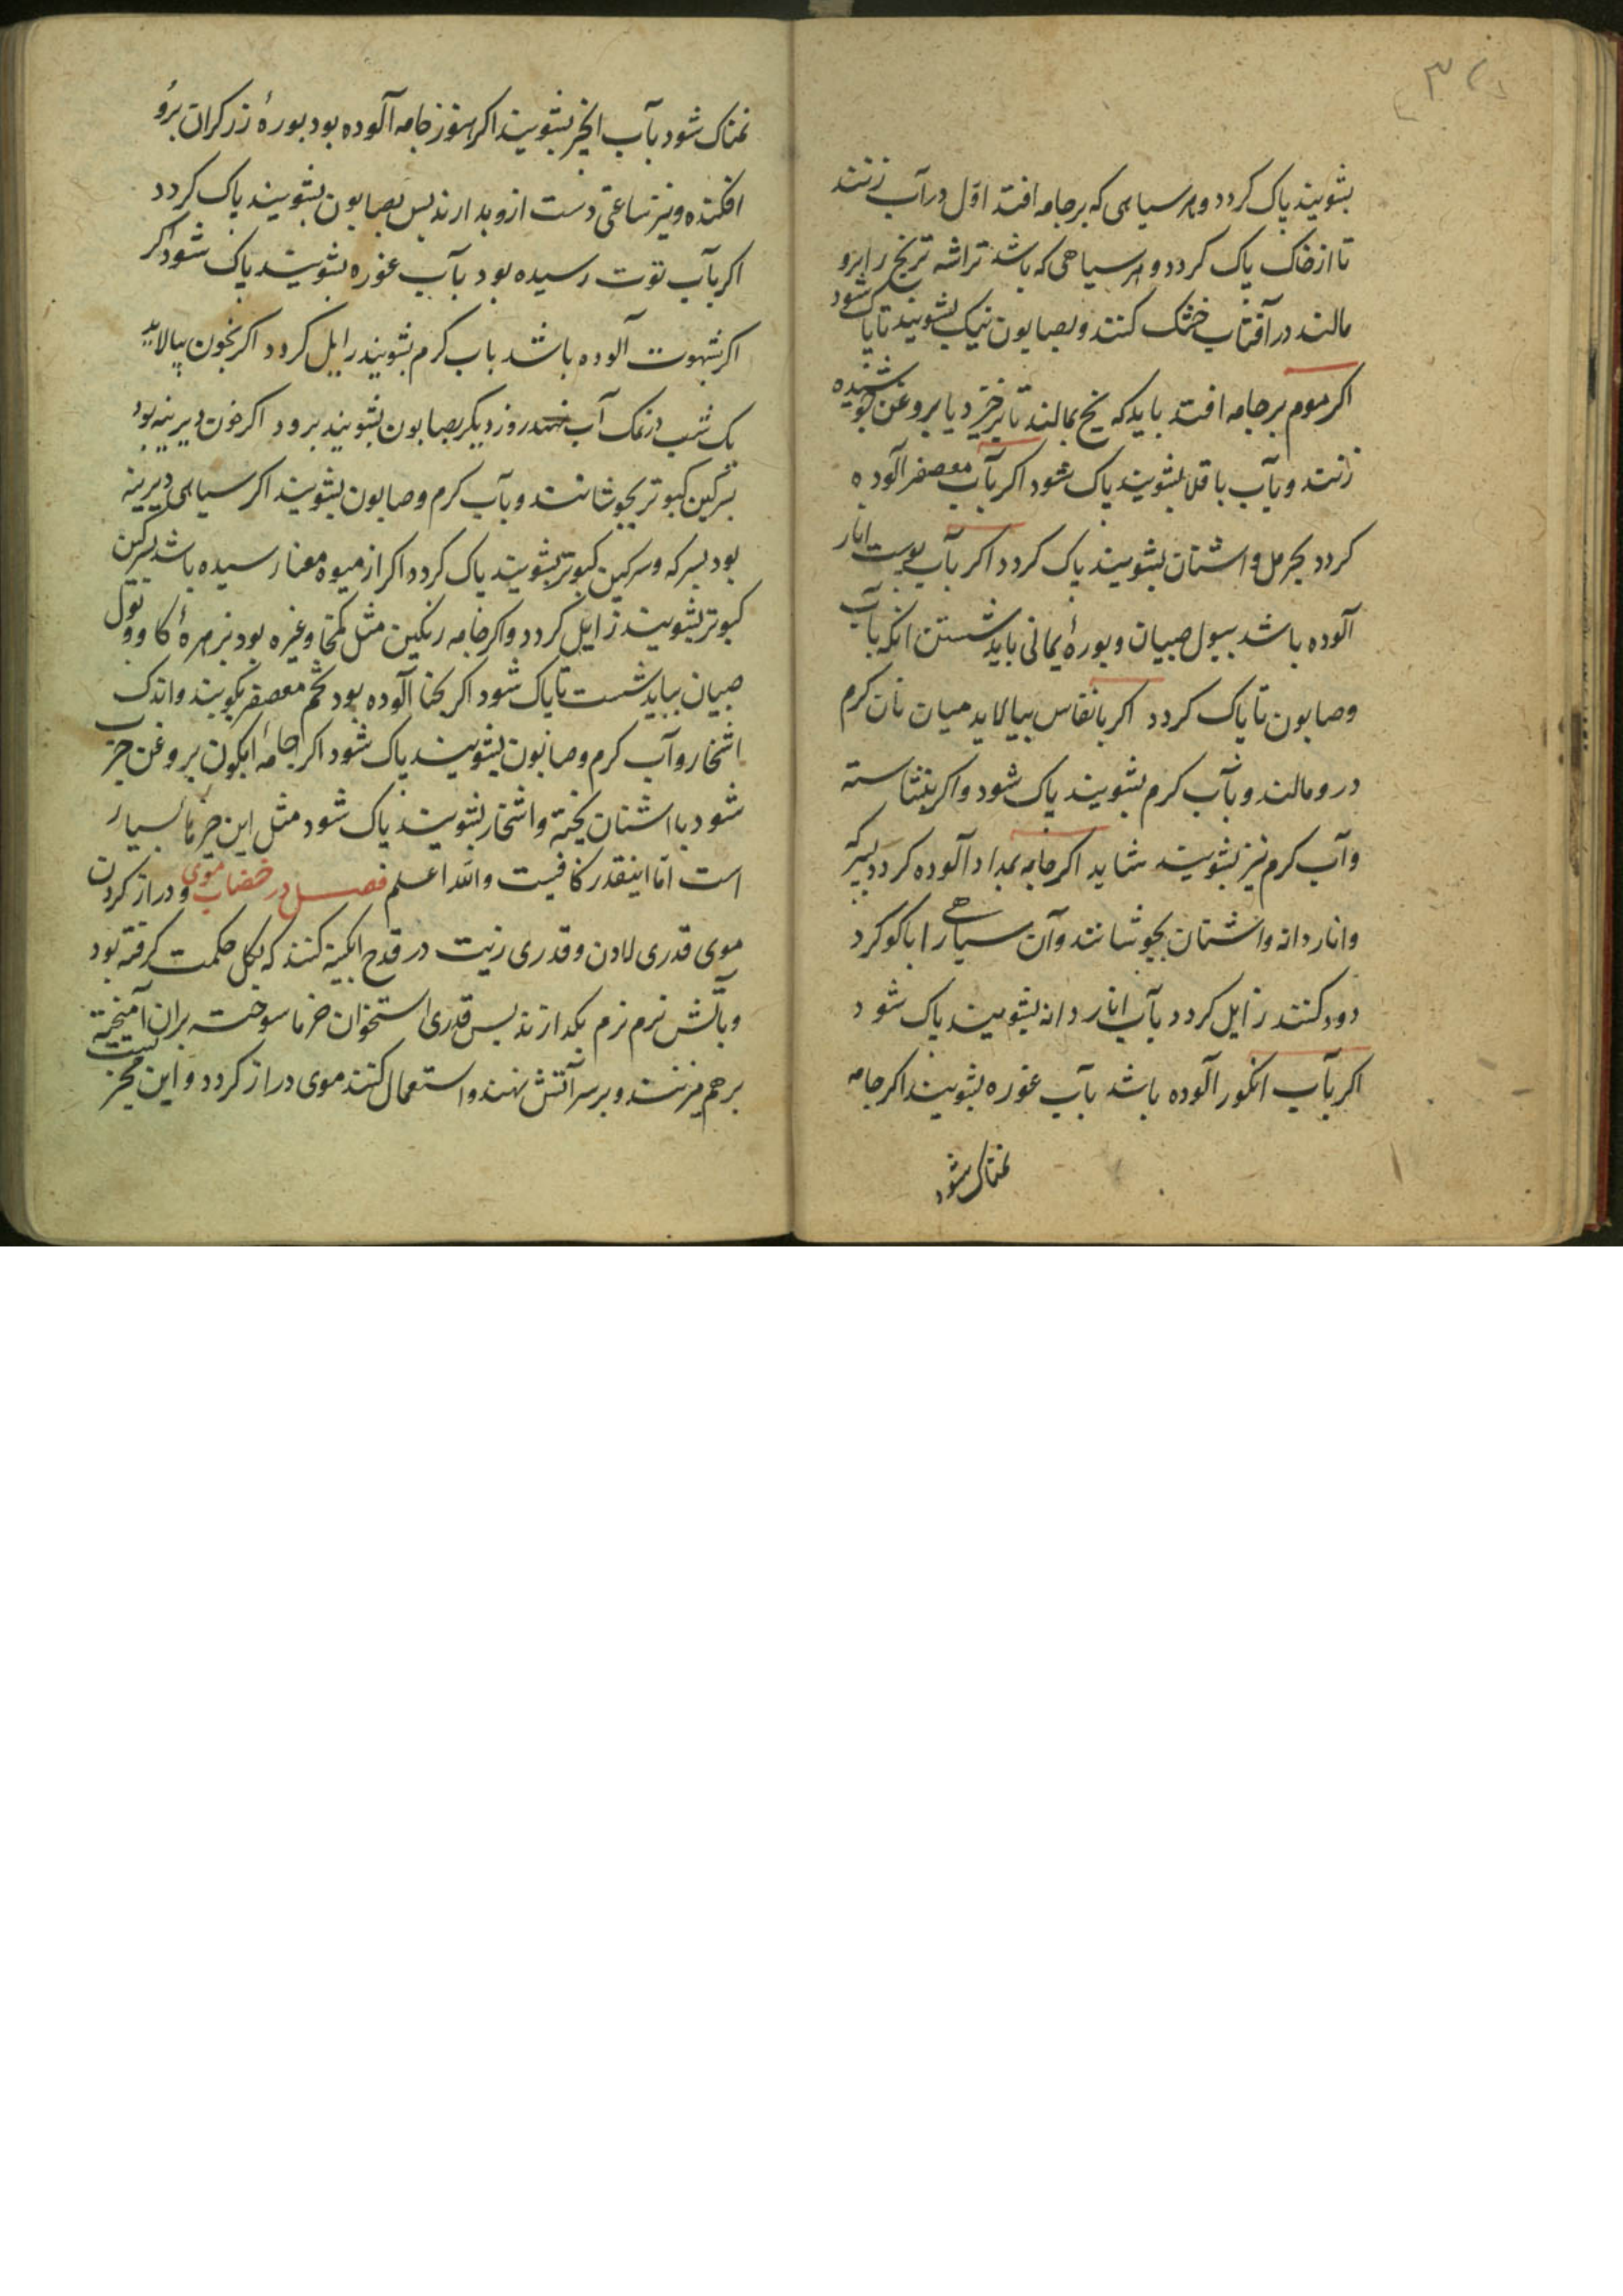 بشویند پاک کردد و هر سیاهی که بر جامه افتد اوّل در آب زنند
تا از خاک پاک کردد و هر سیاهی که باشد تراشه ترنج را برو
مالند در آفتاب خشک کنند و بصابون نیک بشویند تا پاک شود
اکر موم بر جامه افتد باید که یخ بمالند تا برخیزد یا بروغن
زنند و بآب باقلا بشویند پاک شود اکر بآب معصفر آلوده
کردد بحرمل و اشنان بشویند پاک کردد اکر بآب پوست انار
آلوده باشد ببول صبیان و بورهٔ یمانی باید شستن انکه بآب
وصابون تا پاک کردد اکر بانقاس بیالاید میان نان کرم
درو مالند و بآب کرم بشویند پاک شود و اکر بنشاسته
وآب کرم نیز بشویند شاید اکر جامه بمداد آلوده کردد بسرکه
وانار دانه واشنان بجوشانند و آن سیاهی را با کوکرد
دود کنند زایل کردد بآب انار دانه بشویند پاک شود
اکر بآب انکور آلوده باشد بآب غوره بشویند اکر جامه
نمناک شود
نمناک شود بآب انجیر بشویند اکر هنوز جامه آلوده بود بورهٔ زرکران برو
افکنده و نیز ساعتی دست ازو بدارند پس بصابون بشویند پاک کردد
اکر بآب توت رسیده بود بآب غوره بشویند پاک شود اکر
اکر بشهوت آلوده باشد باب کرم بشویند زایل کردد اکر بخون بیالاید
یک شب در نمک آب نهند روز دیکر بصابون بشویند برود اکر خون دیرینه بود
بسرکین کبوتر بجوشانند و بآب کرم وصابون بشویند اکر سیاهی دیرینه
بود بسرکه وسرکین کبوتر بشویند پاک کردد اکر از میوه رسیده باشد بسرکین
کبوتر بشویند زایل کردد و اکر جامه رنکین مثل کمخا وغیره بود بزهرهٔ کاو و بول
صبیان بباید شست تا پاک شود اکر بحنا آلوده بود تخم معصفر بکوبند و اندک
اشخار و آب کرم وصابون بشویند پاک شود اکر جامهٔ ابکون بروغن چرب
شود با اشنان پخته و اشخار بشویند پاک شود مثل این چیزها بسیار
است امّا اینقدر کافیست والله اعلم فصل در خضاب موی و دراز کردن
موی قدری لادن وقدری زیت در قدح ابکینه کنند که بکل حکمت کرفته بود
وبآتش نرم نرم بکدازند پس قدری استخوان خرما سوخته بران آمیخته
برهم میزنند و بر سر آتش نهند و استعمال کنند موی دراز کردد و این مجربست